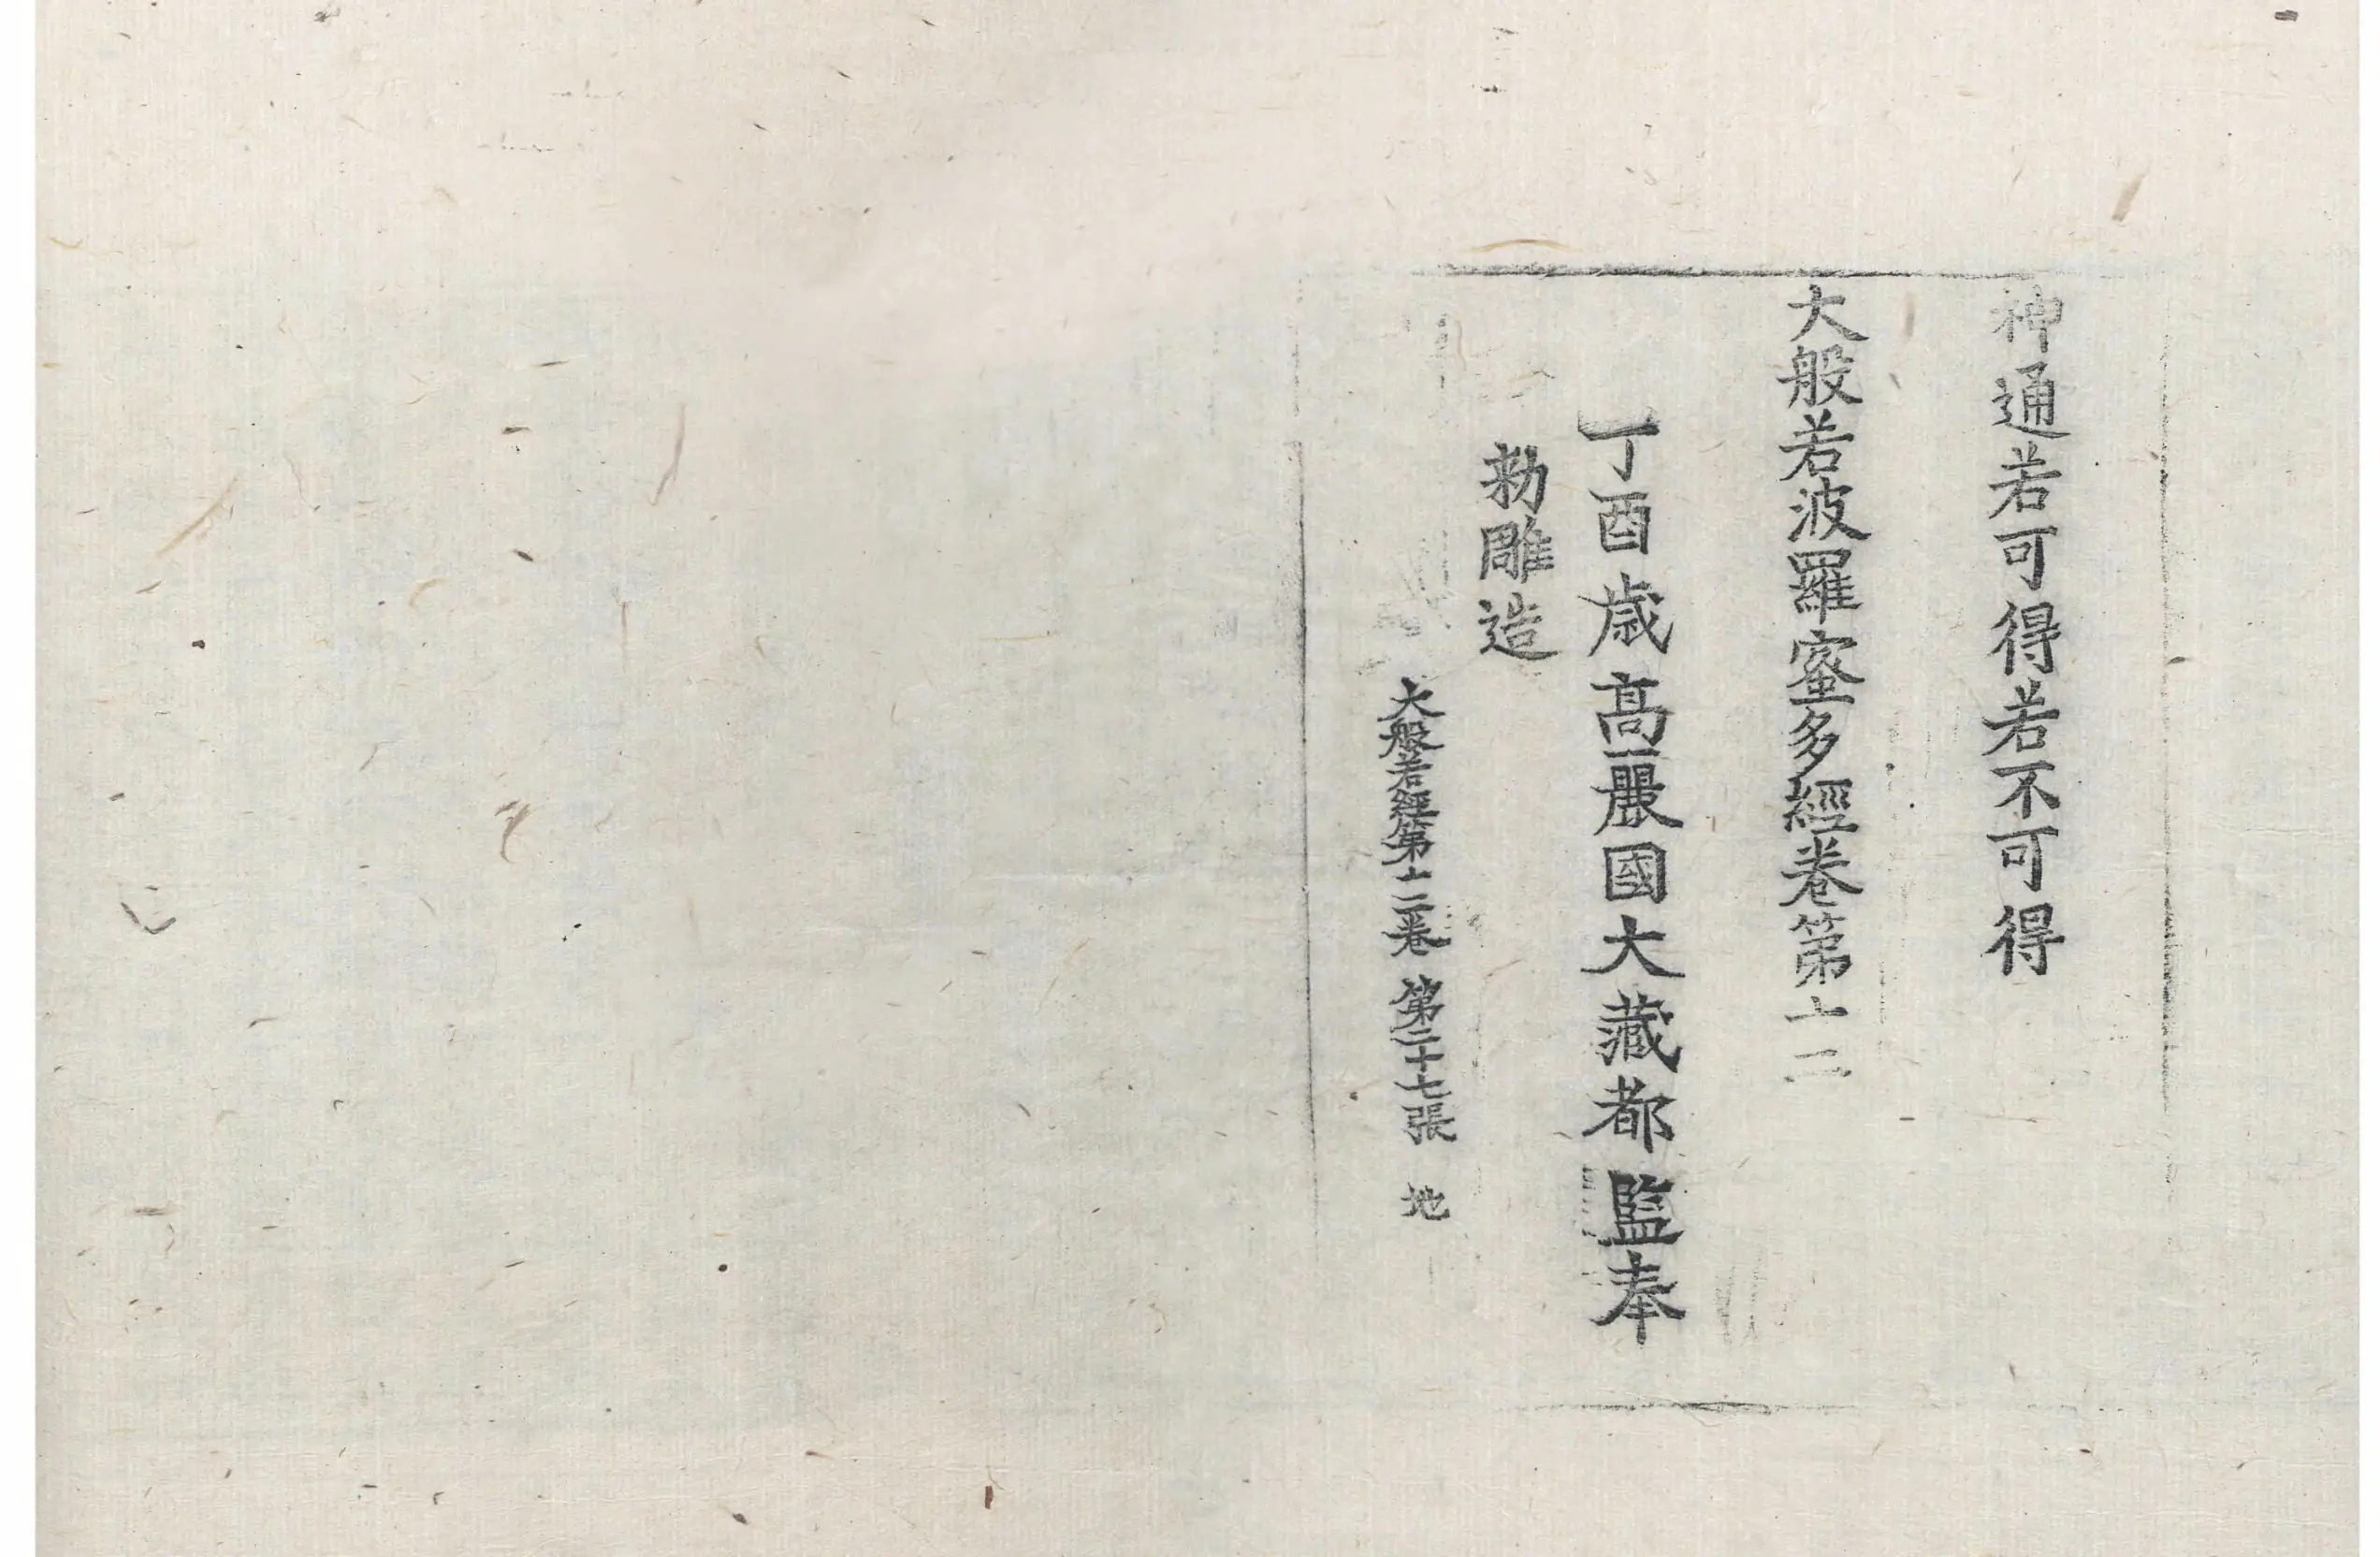 神通若可得若不可得
大般若波羅蜜多經卷第十二
丁酉歲高麗國大藏都監奉
勑雕造
大般若經第十二卷 第二十七張 地